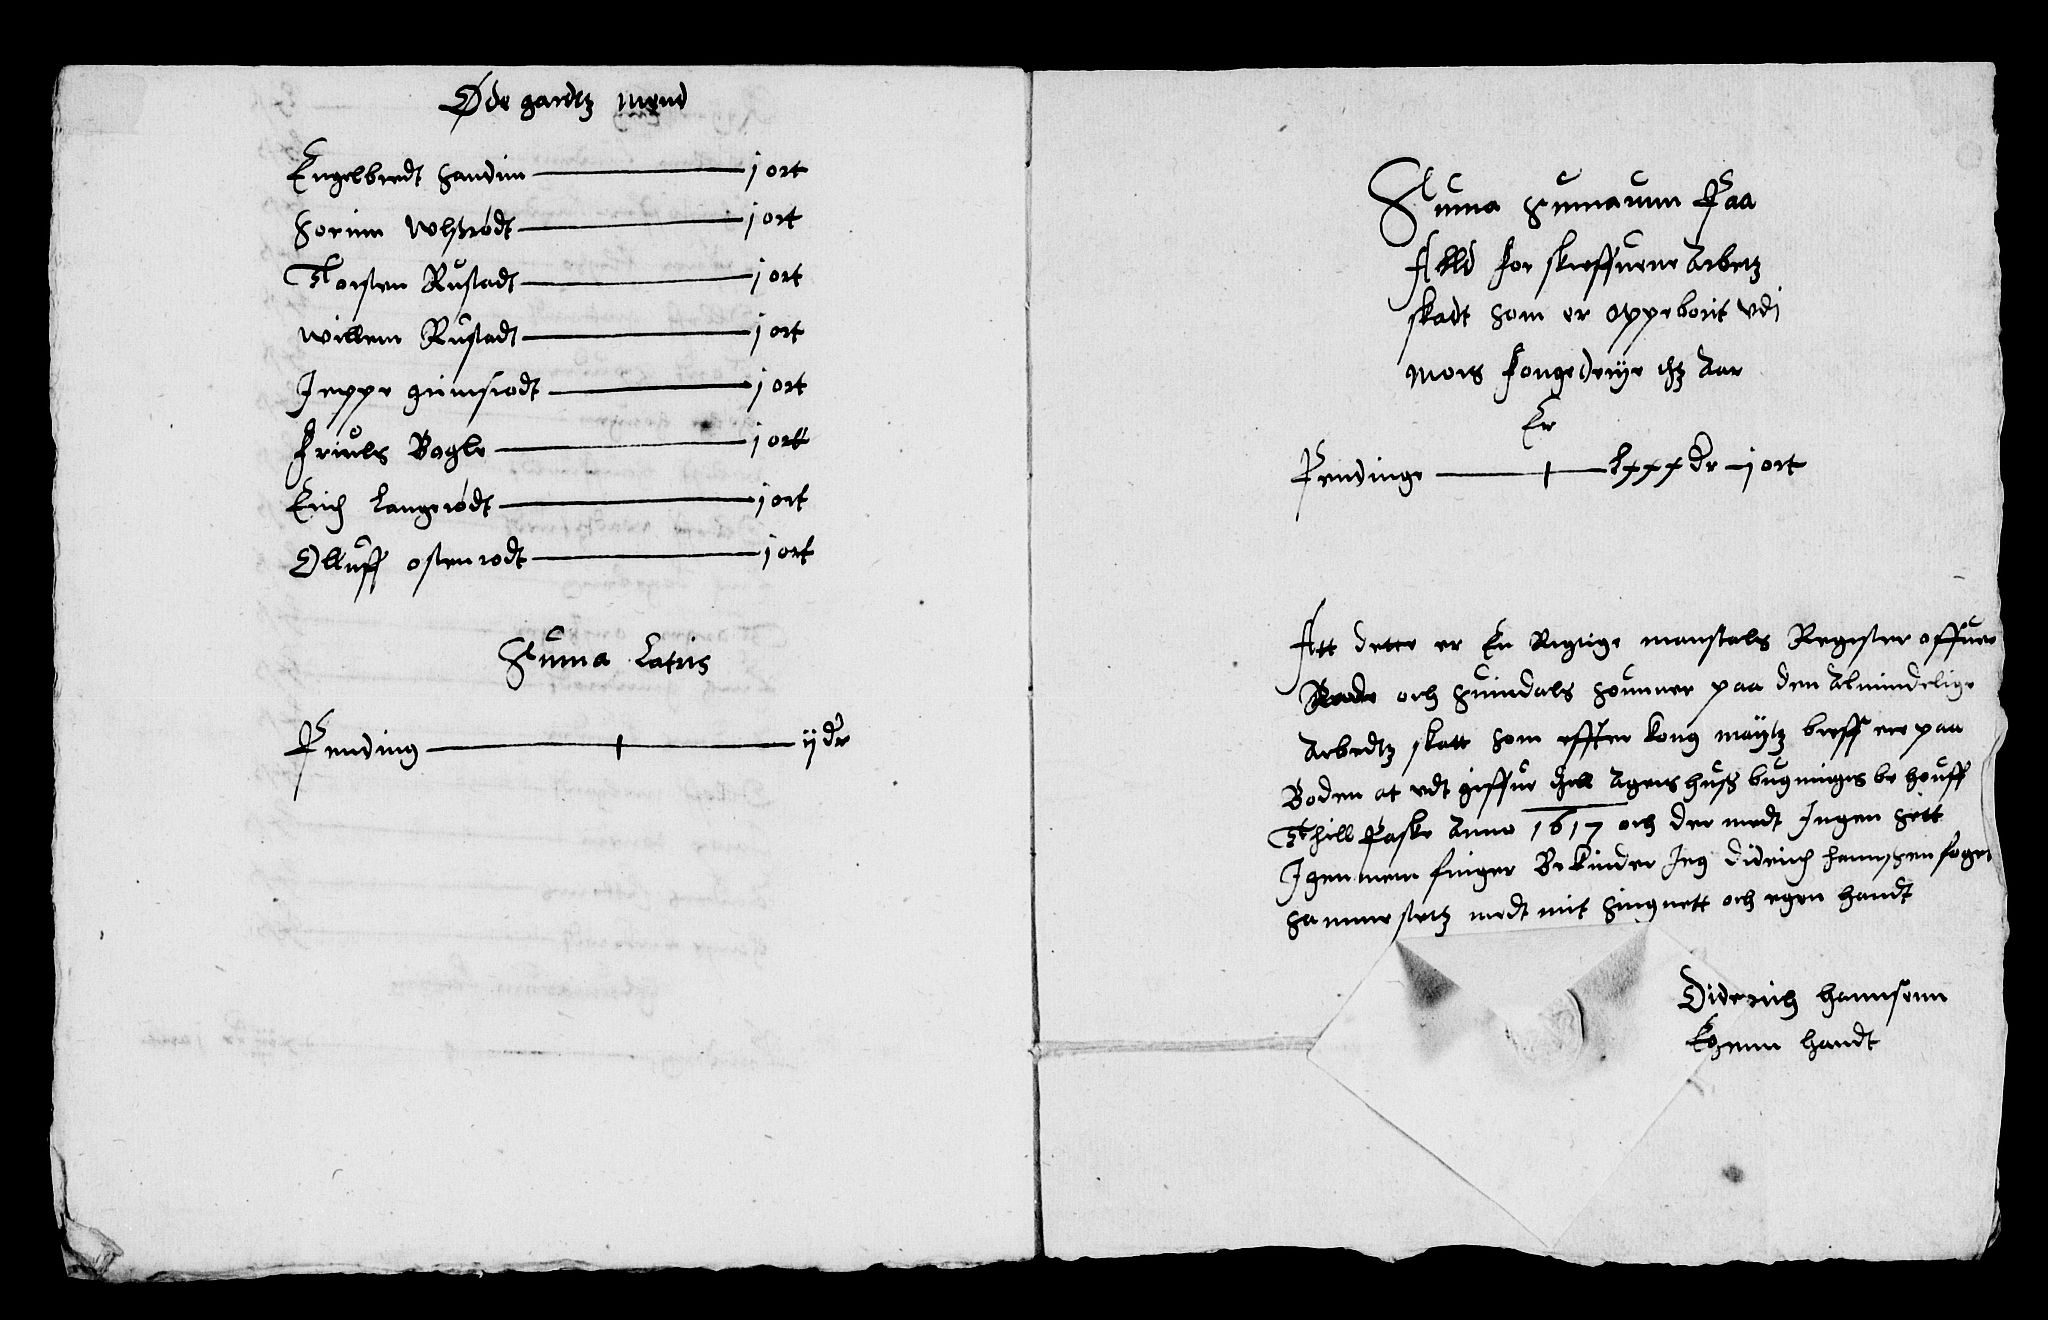 Øde gardtz mend
Engelbredt Sandim — j ort
Sorinn Wlszrødt — j ort
Thorsten Rustadt — j ort
Willem Rustadt — j ort
Jeppe grimsrodt — j ort
Friuls Bogle — j ort
Erich Langerødt — j ort
Olluff ostenrodt — j ort
Suma Latris
Pending — ij dr
Suma sumarum Paa
Alld for skreffuene Arbetz
skadt som er oppeborit vdj
Mors fougederije thz Aar
Er
Pendinge — lxxx dr — j ort
Att dette er En Rigtige manstals Register offuer
Rade och Suindals Sonner paa den Almindelige
Arbedtz skatt som effter kong maytz breff er paa
Boden at vdt giffue thell Agershusz bugninges be houff
Thill Paske Anno 1617 och der medt Ingen sett
Igennem finger Bekinder Jeg Diderich hannszen foget
sammestetz medt mit singnett och egen handt
Diderich hannsenn
Egenn handt